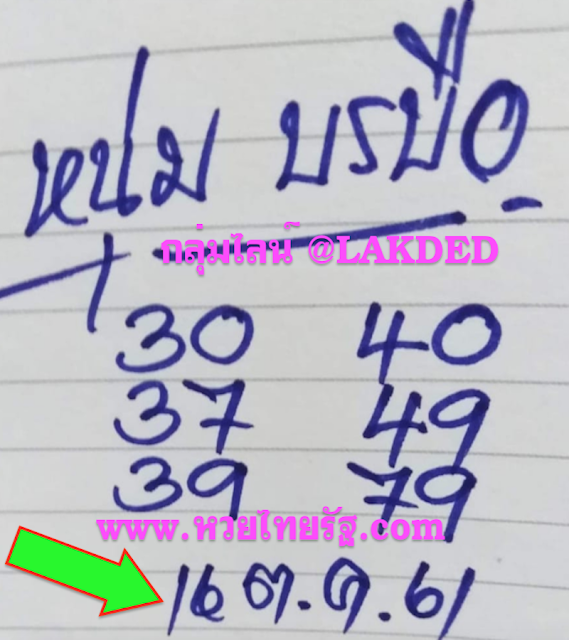 หนุ่ม บรบือ
กลุ่มไลน์ @LAKDED
30 40
37 49
39 79
www.หวยไทยรัฐ.com
16 ต.ค.61